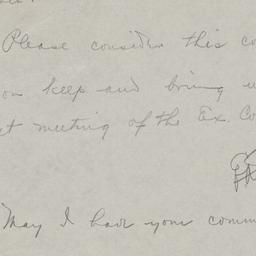 Please consider this co
on keep and bring u
t meeting of the Ex. Co
May I have your comm